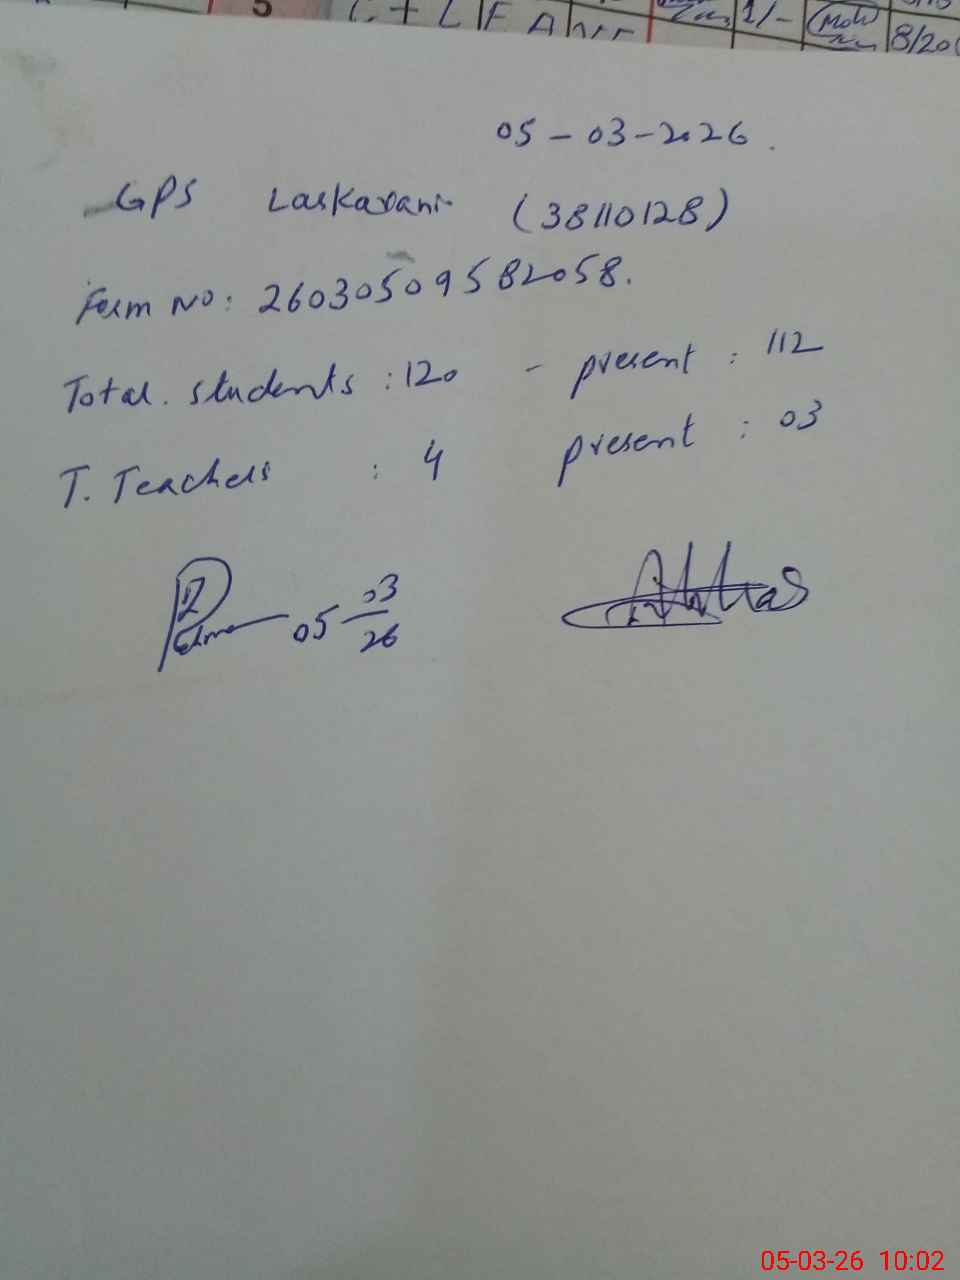 5
1/-
8/20
05-03-2026.
GPS Laskarani (38110128)
Form No: 26030509582058.
Total. students : 120 - present : 112
T. Teachers : 4 present : 03
05 03/26
05-03-26 10:02